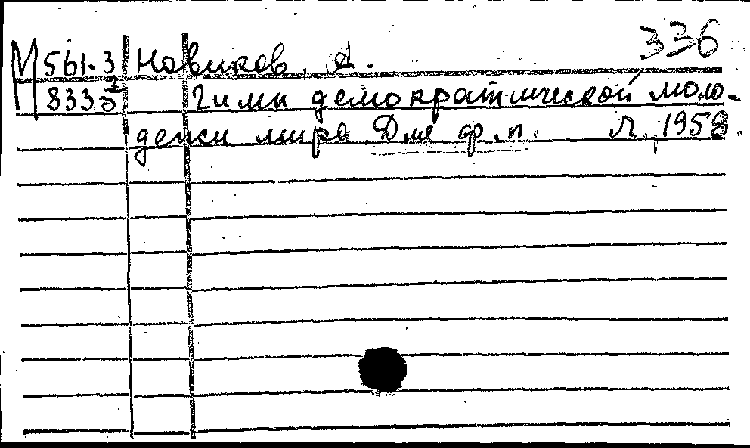 336
М 561-3 Новиков, А.
8335 Гимн демократической моло-
дежи мира Для ф.п. Л., 1958.